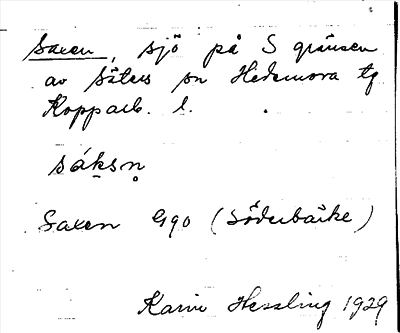 Saxen, sjö på S gränsen
av Säters sn Hedemora tg
Kopparb. l.
sáksn̥
Saxen G90 (Söderbärke)
Karin Hessling 1929